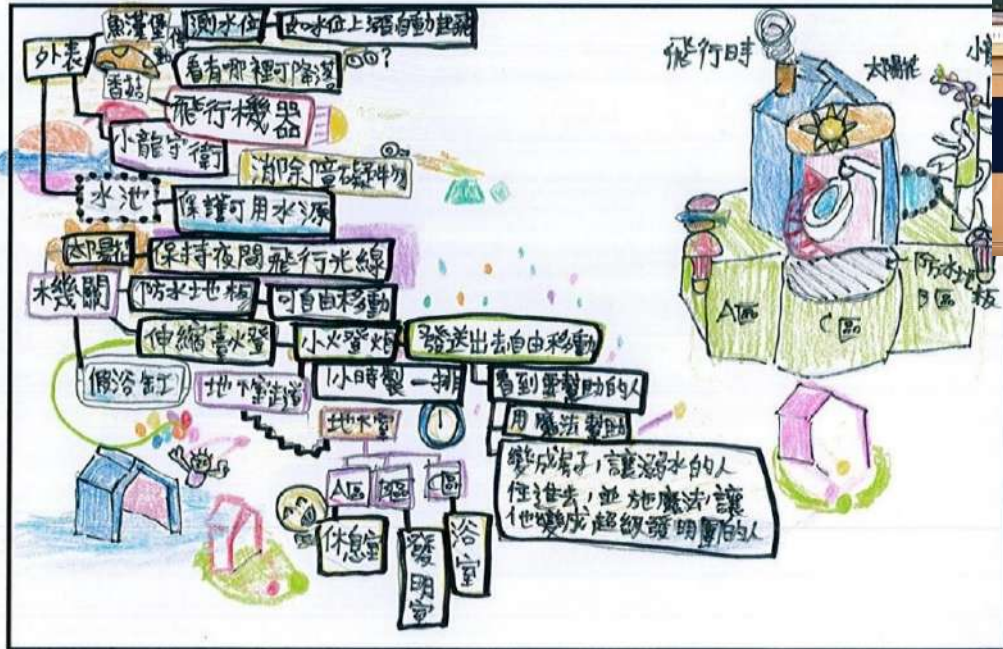 外表
魚漢堡
測水位
如水位上漲自動起飛
看有哪裡可降落
?
香菇
飛行機器
小龍守衛
消除障礙物
水池
保護可用水源
太陽花
保持夜間飛行光線
機關
防水地板
可自由移動
伸縮臺燈
小燈炮
發送出去自由移動
假浴缸
1小時製一排
看到需幫助的人
用魔法幫助
變成房子,讓溺水的人
住進去,並施魔法,讓
他變成超級發明團的人
地下室
A區
B區
C區
休息室
發明室
浴室
飛行時
太陽花
小
防水地板
A區
C區
B區